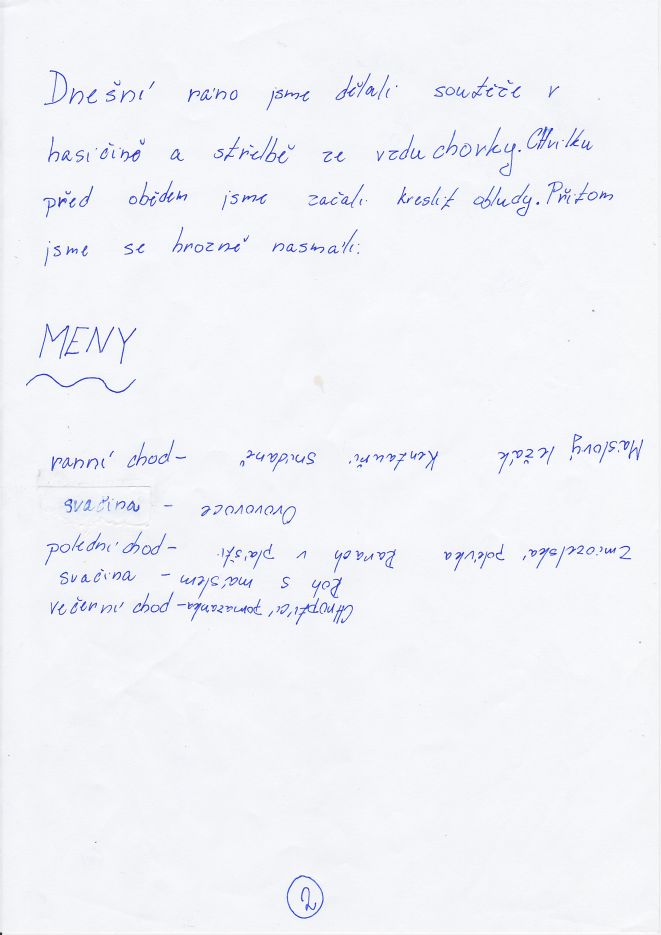 Dnešní ráno jsme dělali soutěže v
hasičině a střelbě ze vzduchovky. CHvilku
před obědem jsme začali kreslit obludy. Přitom
jsme se hrozně nasmáli.
MENY
ranní chod - Máslový ležák Kentauří snídaně
svačina - Ovovovoce
polední chod - Zmiozelská polévka v plášti
svačina - Roh s máslem
večerní chod - pomazánka
2